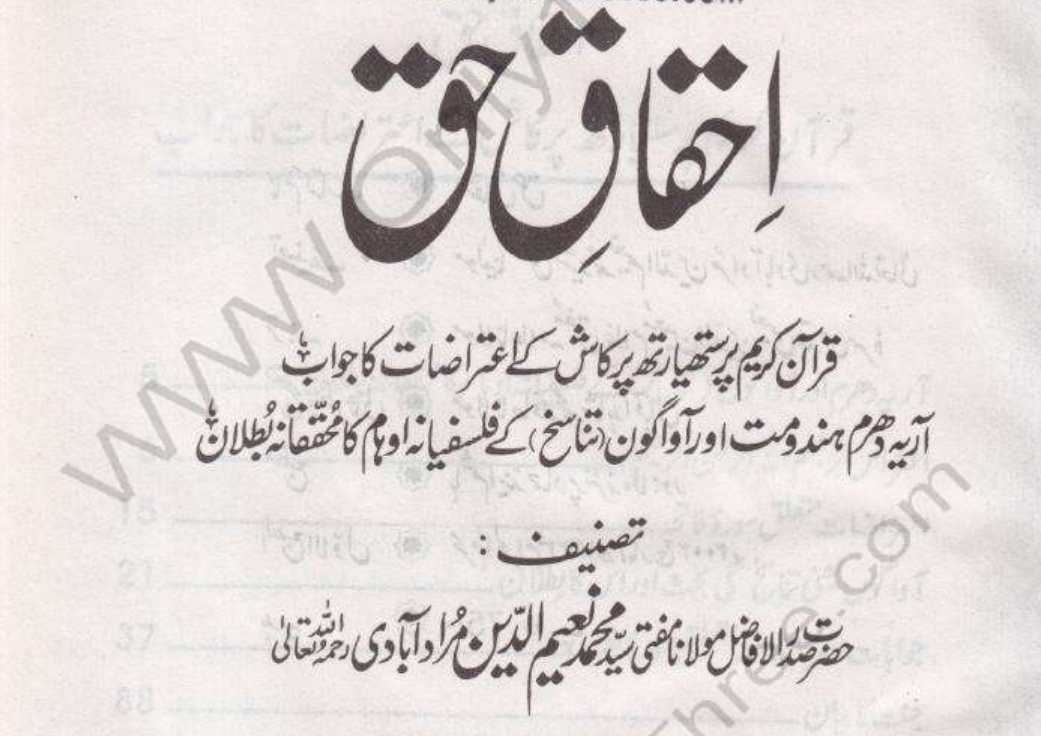 اِحقاقِ حق
قرآن کریم پر ستھیارتھ پرکاش کے اعتراضات کا جواب
آریہ دھرم ہندومت اور آواگون (تناسخ) کے فلسفیانہ اوہام کا مُحققانہ بُطلان
تصنیف :
حضرت صدر الافاضل مولانا مفتی سیّد محمد نعیم الدّین مُراد آبادی رحمۃ اللہ تعالیٰ